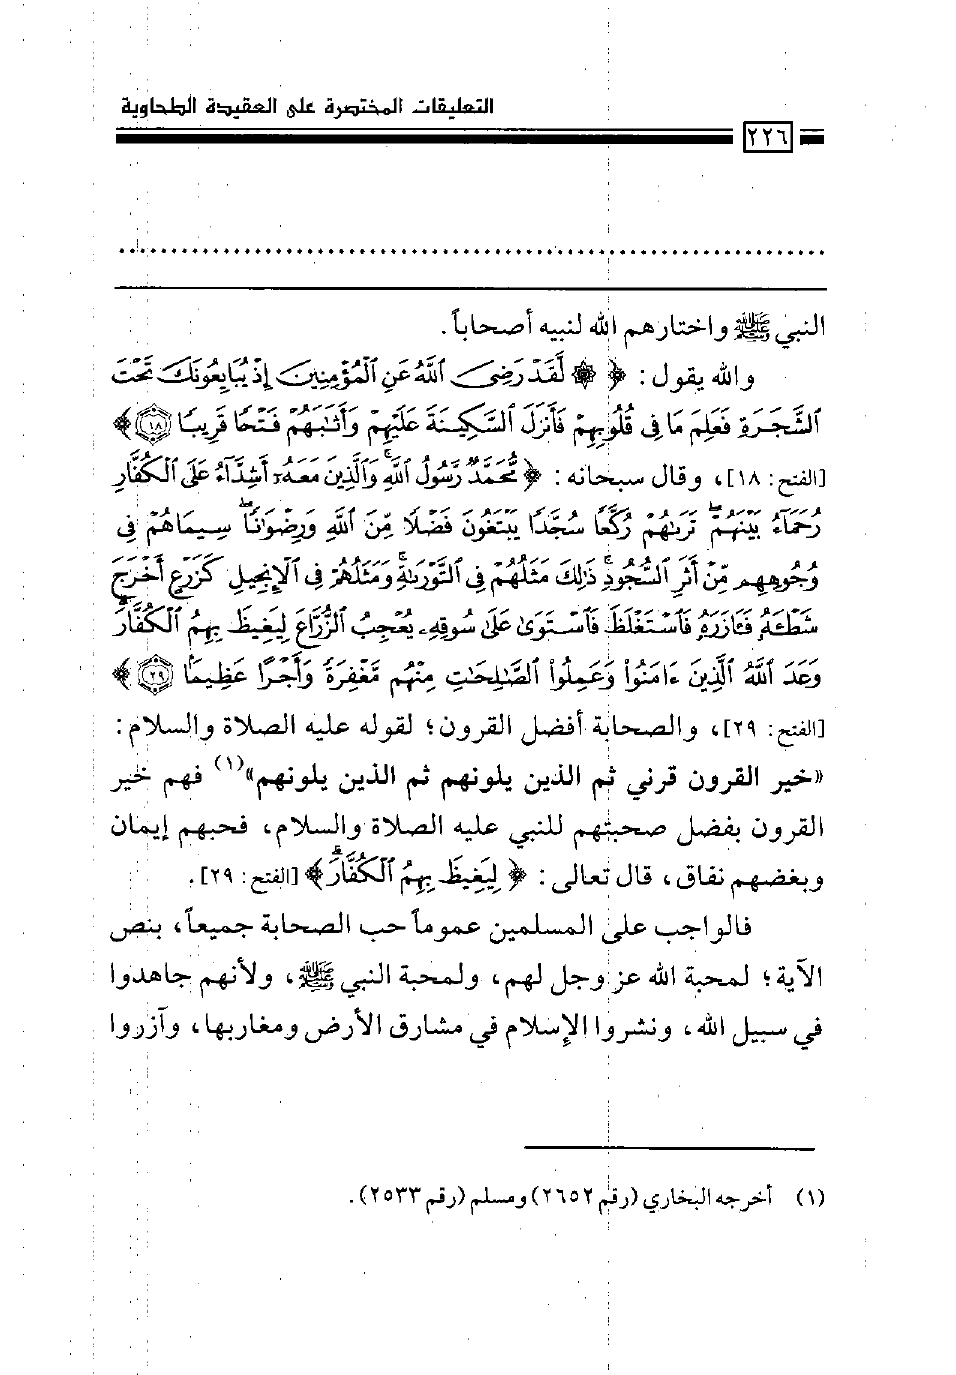 التعليقات المختصرة على العقيدة الطحاوية
٢٢٦
النبي ﷺ واختارهم الله لنبيه أصحاباً.
والله يقول: ﴿ ۞ لَّقَدْ رَضِيَ ٱللَّهُ عَنِ ٱلْمُؤْمِنِينَ إِذْ يُبَايِعُونَكَ تَحْتَ
ٱلشَّجَرَةِ فَعَلِمَ مَا فِى قُلُوبِهِمْ فَأَنزَلَ ٱلسَّكِينَةَ عَلَيْهِمْ وَأَثَٰبَهُمْ فَتْحًا قَرِيبًا ١٨ ﴾
[الفتح: ١٨]، وقال سبحانه: ﴿ مُّحَمَّدٌ رَّسُولُ ٱللَّهِ ۚ وَٱلَّذِينَ مَعَهُۥٓ أَشِدَّآءُ عَلَى ٱلْكُفَّارِ
رُحَمَآءُ بَيْنَهُمْ ۖ تَرَىٰهُمْ رُكَّعًا سُجَّدًا يَبْتَغُونَ فَضْلًا مِّنَ ٱللَّهِ وَرِضْوَٰنًا ۖ سِيمَاهُمْ فِى
وُجُوهِهِم مِّنْ أَثَرِ ٱلسُّجُودِ ۚ ذَٰلِكَ مَثَلُهُمْ فِى ٱلتَّوْرَىٰةِ ۚ وَمَثَلُهُمْ فِى ٱلْإِنجِيلِ كَزَرْعٍ أَخْرَجَ
شَطْـَٔهُۥ فَـَٔازَرَهُۥ فَٱسْتَغْلَظَ فَٱسْتَوَىٰ عَلَىٰ سُوقِهِۦ يُعْجِبُ ٱلزُّرَّاعَ لِيَغِيظَ بِهِمُ ٱلْكُفَّارَ ۗ
وَعَدَ ٱللَّهُ ٱلَّذِينَ ءَامَنُوا۟ وَعَمِلُوا۟ ٱلصَّٰلِحَٰتِ مِنْهُم مَّغْفِرَةً وَأَجْرًا عَظِيمًۢا ٢٩ ﴾
[الفتح: ٢٩]، والصحابة أفضل القرون؛ لقوله عليه الصلاة والسلام:
«خير القرون قرني ثم الذين يلونهم ثم الذين يلونهم»(١) فهم خير
القرون بفضل صحبتهم للنبي عليه الصلاة والسلام، فحبهم إيمان
وبغضهم نفاق، قال تعالى: ﴿ لِيَغِيظَ بِهِمُ ٱلْكُفَّارَ ۗ ﴾ [الفتح: ٢٩].
فالواجب على المسلمين عموماً حب الصحابة جميعاً، بنص
الآية؛ لمحبة الله عز وجل لهم، ولمحبة النبي ﷺ، ولأنهم جاهدوا
في سبيل الله، ونشروا الإسلام في مشارق الأرض ومغاربها، وآزروا
(١) أخرجه البخاري (رقم ٢٦٥٢) ومسلم (رقم ٢٥٣٣).